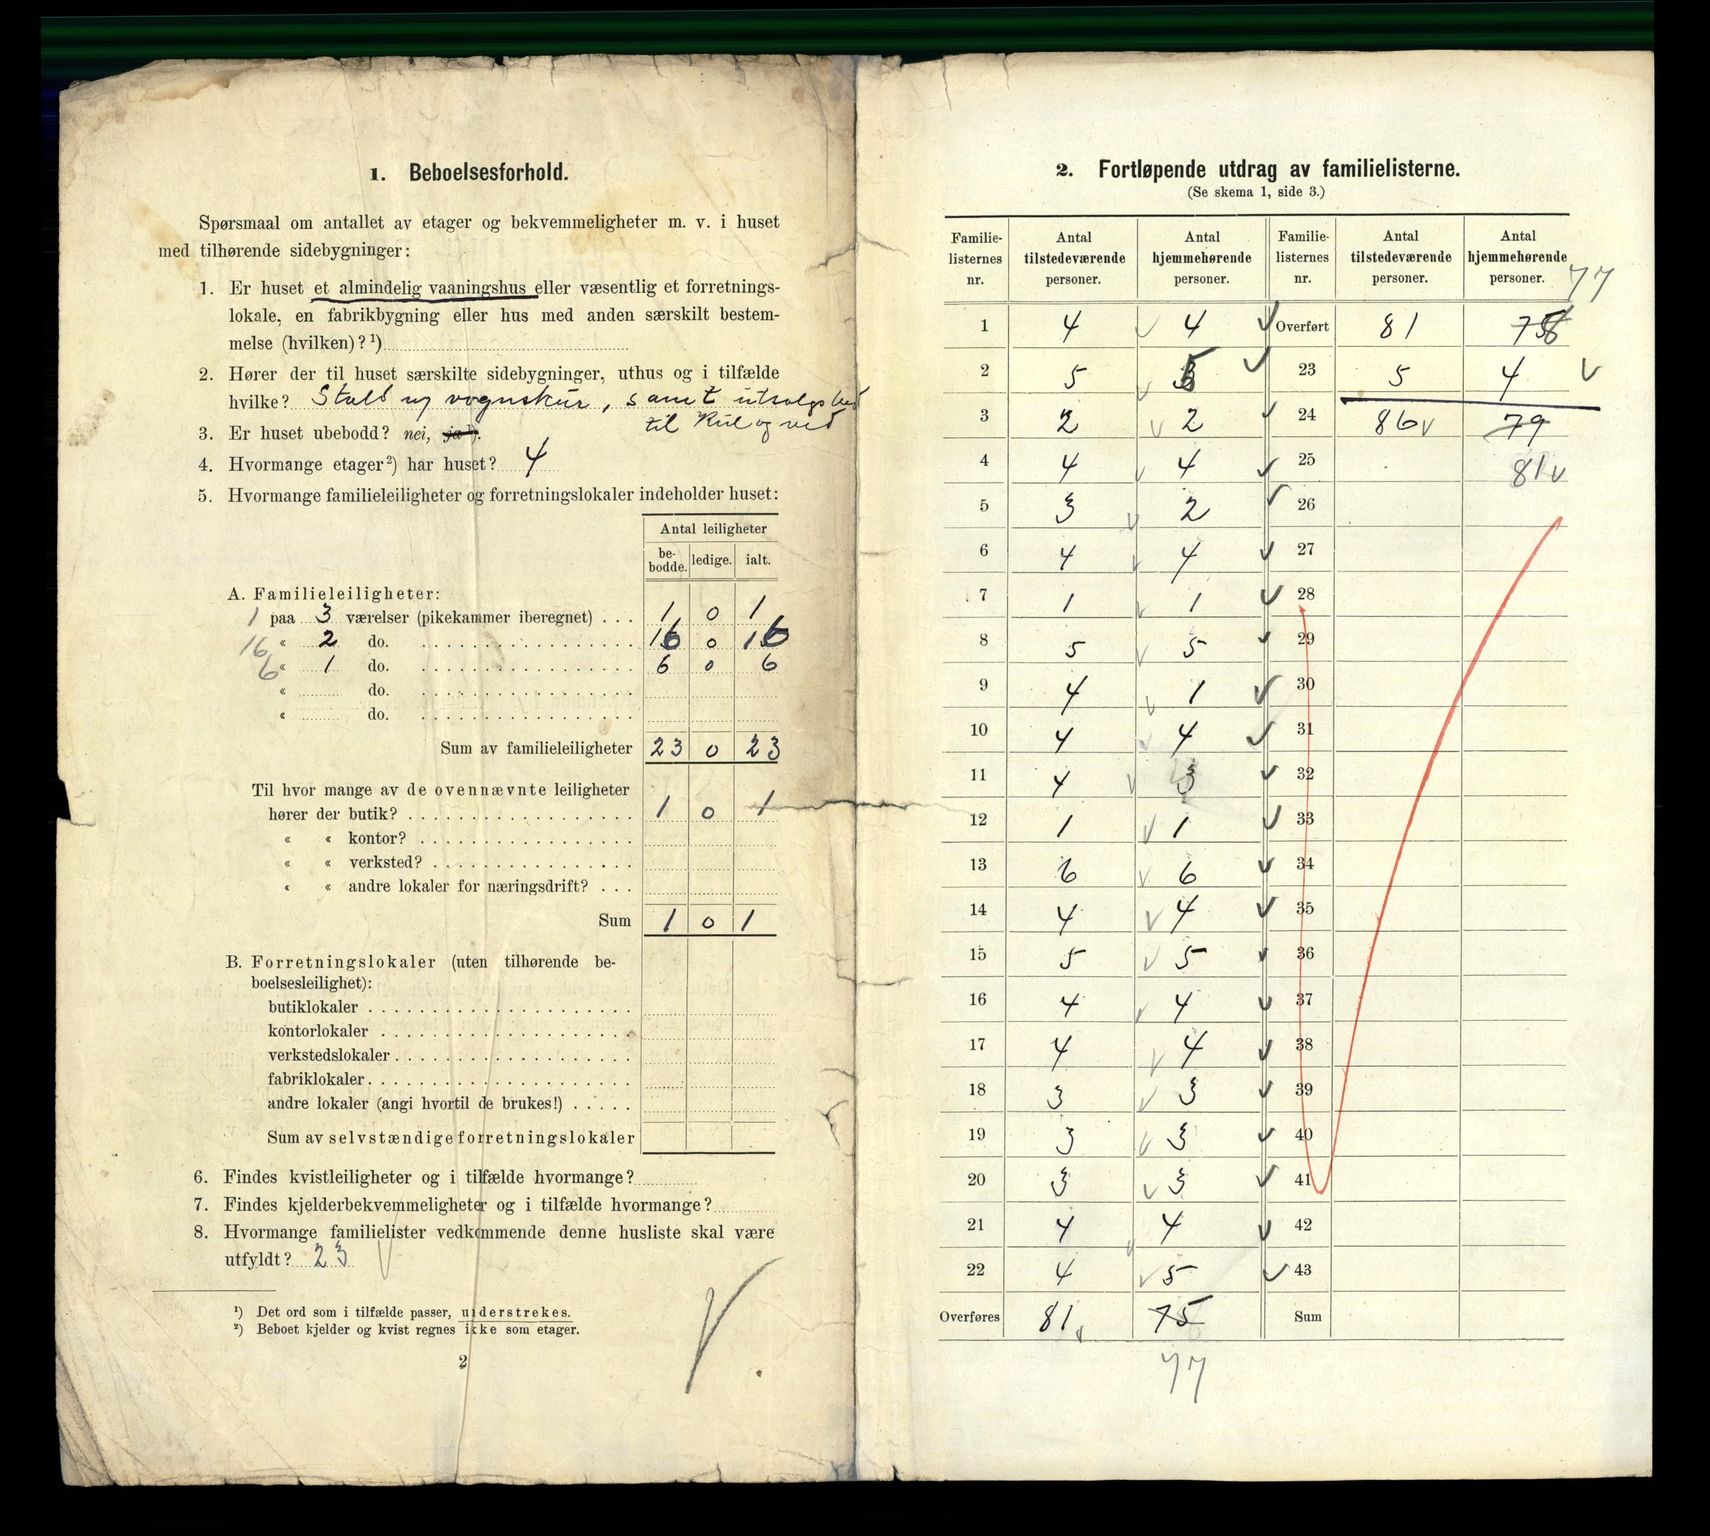 1. Beboelsesforhold.
Spørsmaal om antallet av etager og bekvemmeligheter m. v. i huset
med tilhørende sidebygninger:
1. Er huset et almindelig vaaningshus eller væsentlig et forretnings-
lokale, en fabrikbygning eller hus med anden særskilt bestem-
melse (hvilken)? ¹)
2. Hører der til huset særskilte sidebygninger, uthus og i tilfælde
hvilke? Stald og vognskur, samt utsalgsbod
til Kul og ved
3. Er huset ubebodd? nei, ja ¹).
4. Hvormange etager²) har huset? 4
5. Hvormange familieleiligheter og forretningslokaler indeholder huset:
Antal leiligheter
be-
bodde. ledige. ialt.
A. Familieleiligheter:
1 paa 3 værelser (pikekammer iberegnet) . . . 1 0 1
16 « 2 do. 16 0 16
6 « 1 do. 6 0 6
« do.
« do.
Sum av familieleiligheter 23 0 23
Til hvor mange av de ovennævnte leiligheter
hører der butik? 1 0 1
« « kontor?
« « verksted?
« « andre lokaler for næringsdrift? . . .
Sum 1 0 1
B. Forretningslokaler (uten tilhørende be-
boelsesleilighet):
butiklokaler
kontorlokaler
verkstedslokaler
fabriklokaler
andre lokaler (angi hvortil de brukes!)
Sum av selvstændige forretningslokaler
6. Findes kvistleiligheter og i tilfælde hvormange?
7. Findes kjelderbekvemmeligheter og i tilfælde hvormange?
8. Hvormange familielister vedkommende denne husliste skal være
utfyldt? 23
¹) Det ord som i tilfælde passer, understrekes.
²) Beboet kjelder og kvist regnes ikke som etager.
2
2. Fortløpende utdrag av familielisterne.
(Se skema 1, side 3.)
Familie-listernes nr. Antal tilstedeværende personer. Antal hjemmehørende personer. Familie-listernes nr. Antal tilstedeværende personer. Antal hjemmehørende personer. 77
1 4 4 Overført 81 75
2 5 5 23 5 4
3 2 2 24 86 79
4 4 4 25 81
5 3 2 26
6 4 4 27
7 1 1 28
8 5 5 29
9 4 1 30
10 4 4 31
11 4 3 32
12 1 1 33
13 6 6 34
14 4 4 35
15 5 5 36
16 4 4 37
17 4 4 38
18 3 3 39
19 3 3 40
20 3 3 41
21 4 4 42
22 4 5 43
Overføres 81 75 Sum
77